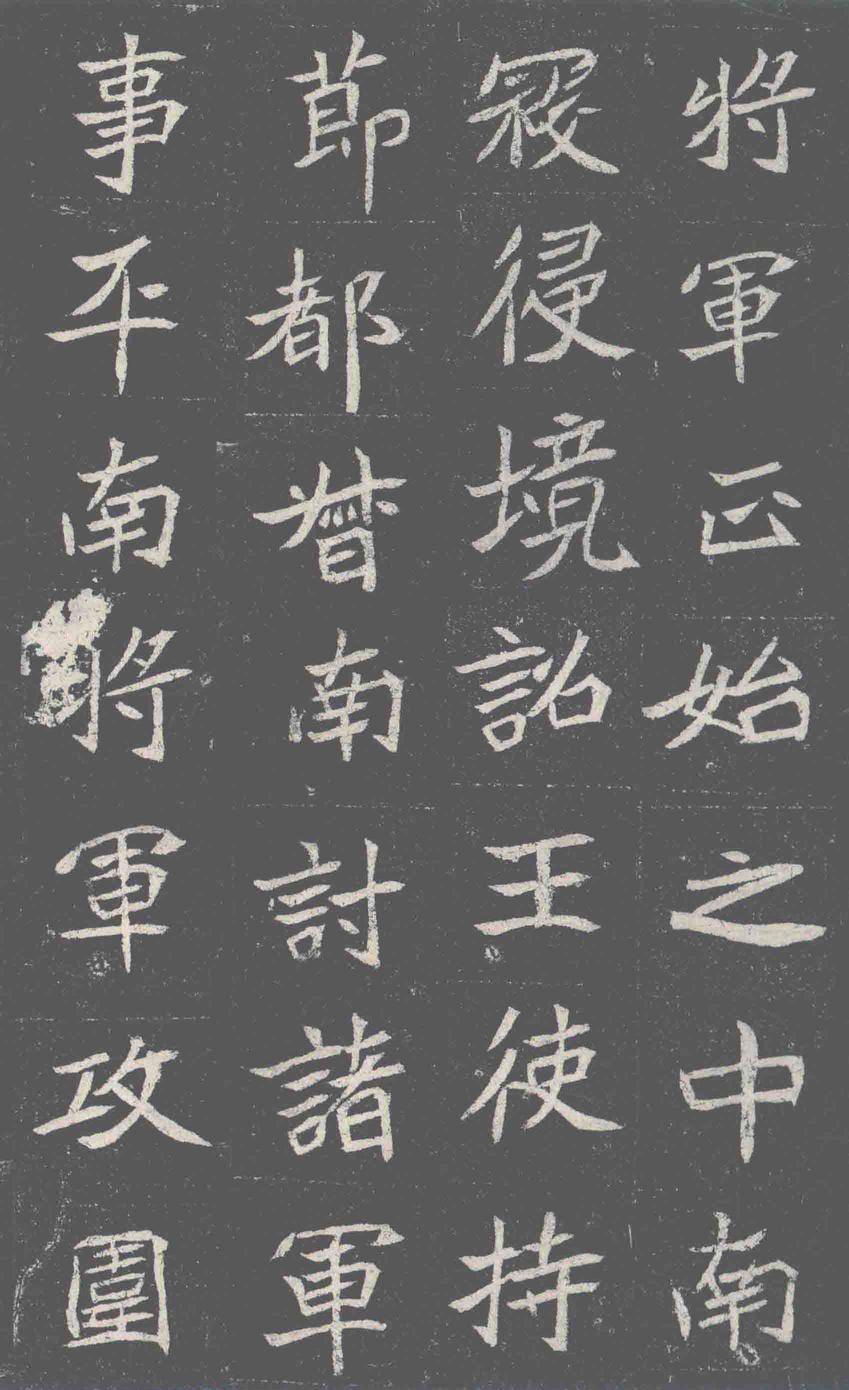 將軍正始之中南
寇侵境詔王使持
節都督南討諸軍
事平南將軍攻圍